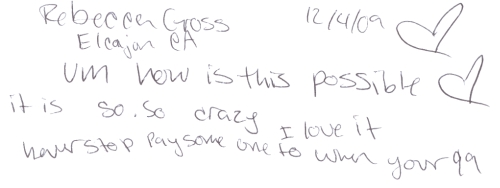 Rebecca Gross 12/4/09
Elcajon CA
Um how is this possible
it is so. so crazy I love it
never stop pay some one to when your 99